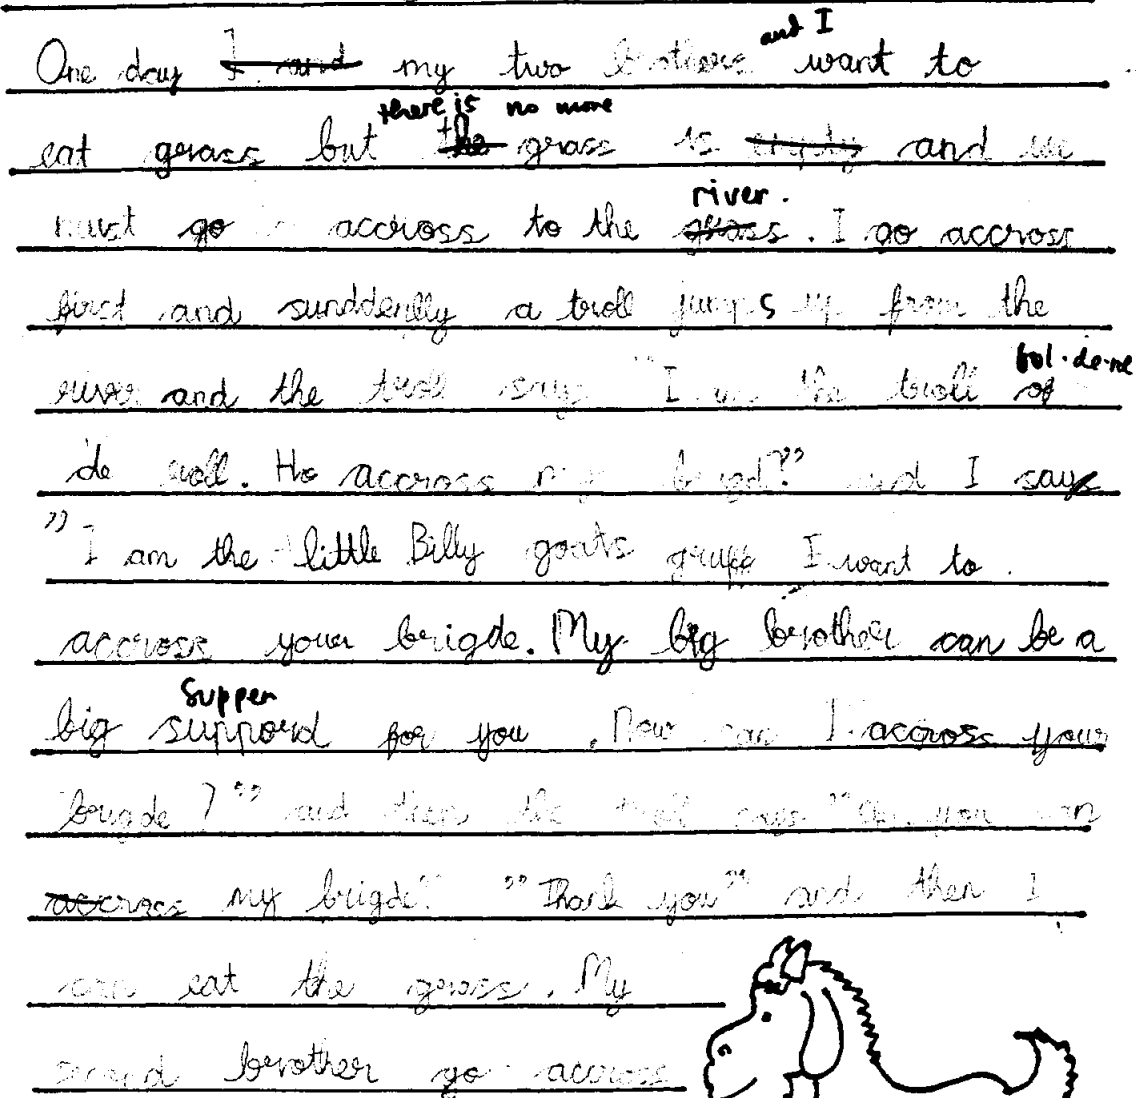 and I
One day I and my two brothers want to
there is no more
eat grass but the grass is empty and we
river.
must go accross to the grass. I go accross
first and sunddenlly a troll jumps up from the
fol.de.ne
river and the troll say "I am the troll of
de woll. Ho accross my brigd?" and I says
"I am the little Billy goats gruff I want to
accross your brigde. My big brother can be a
Supper
big suppord for you. Now can I accross your
brigde?" and then the troll says "Ok you can
accross my brigde" "Thank you" and then I
can eat the grass. My
second brother go accross